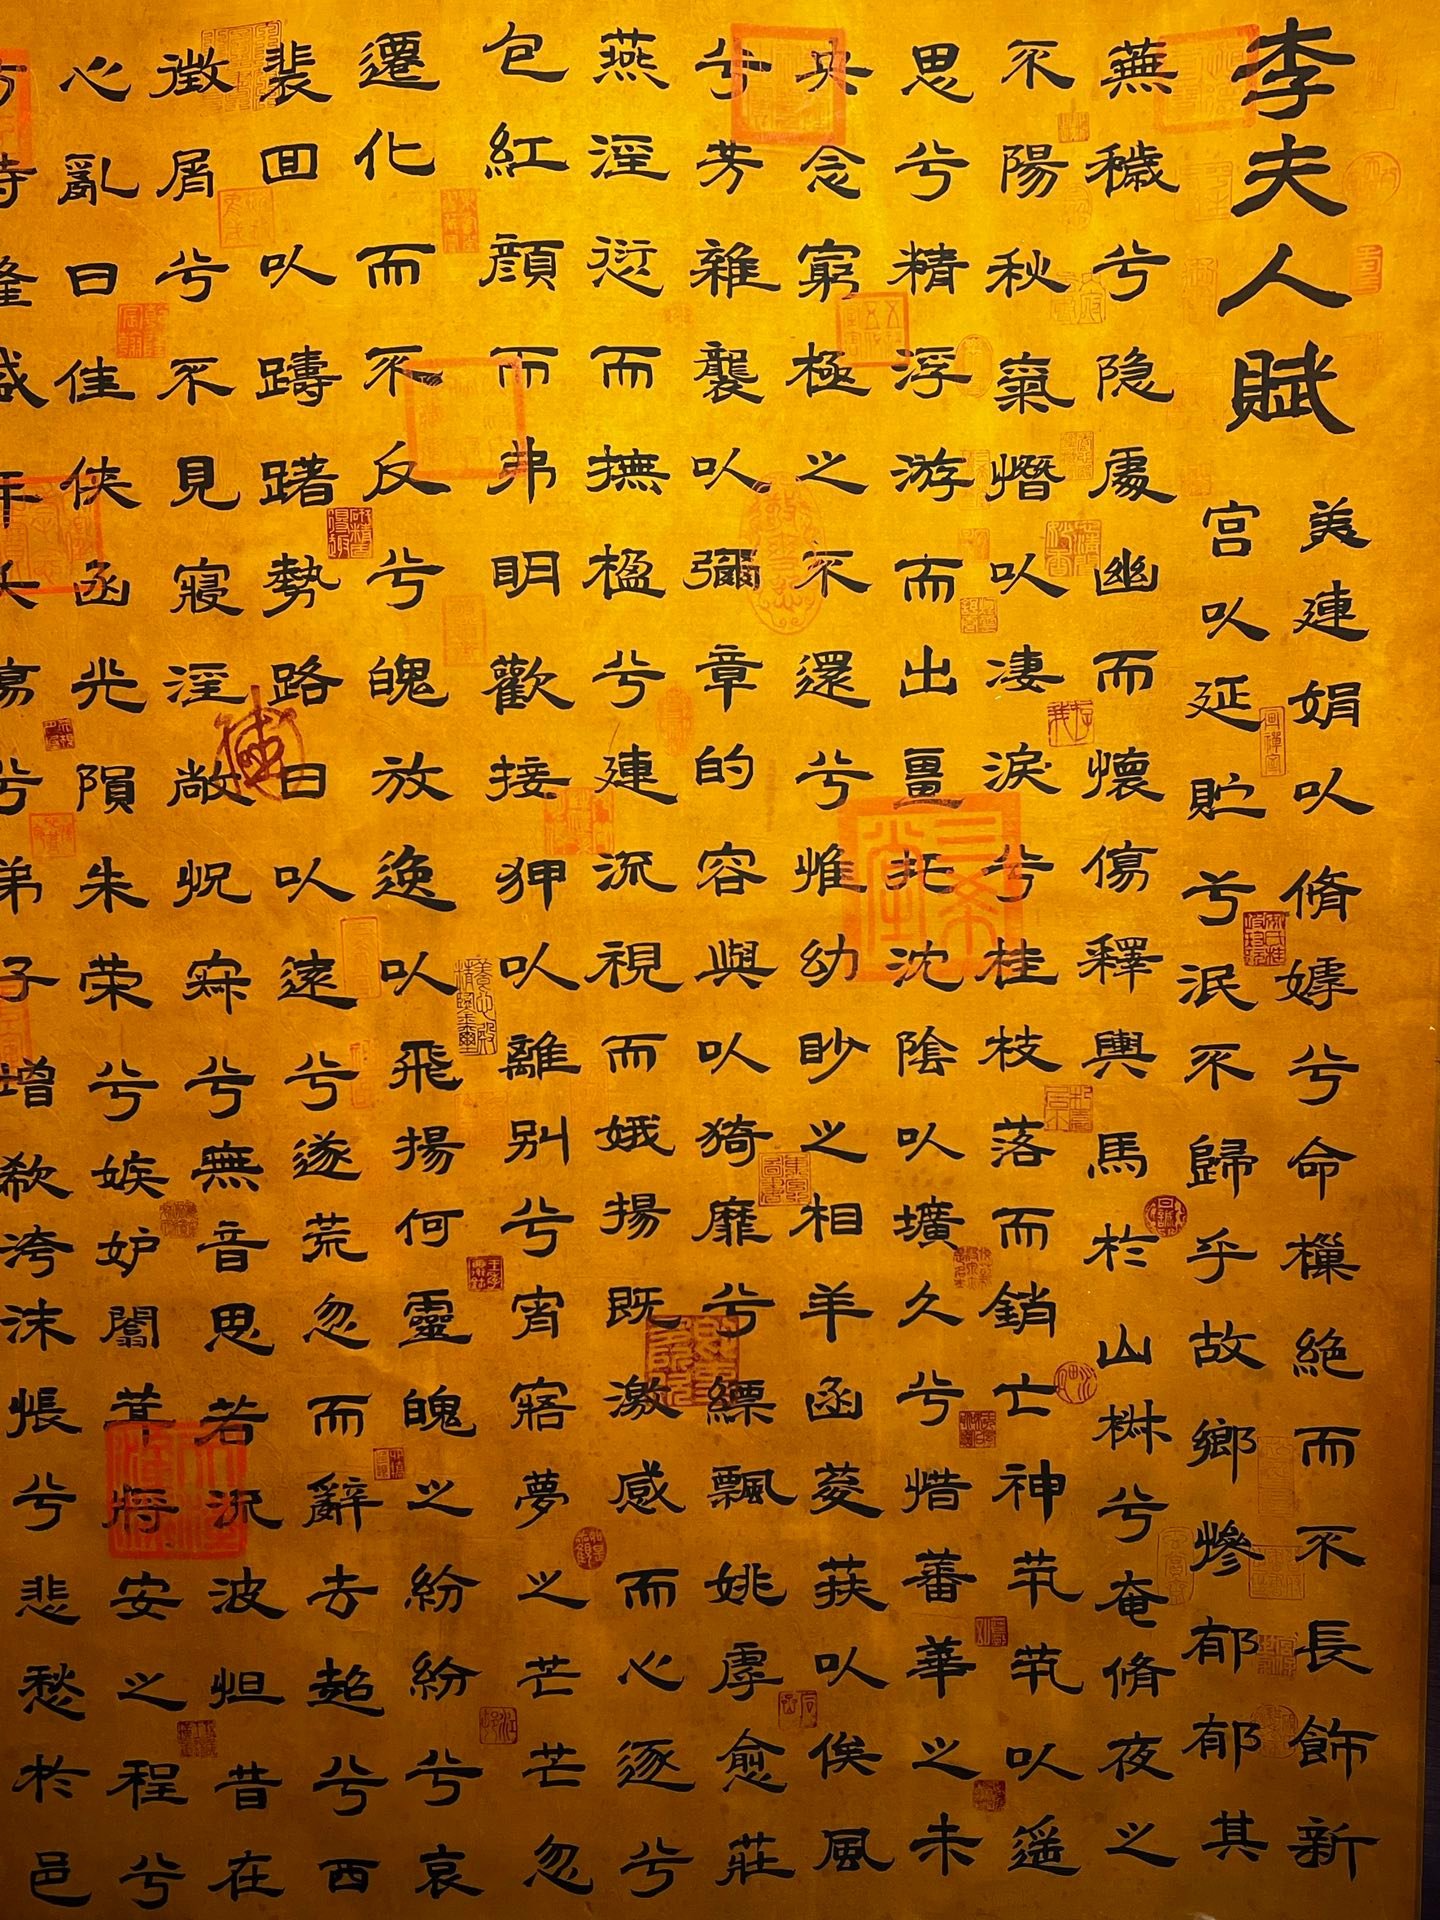 李夫人賦
美連娟以脩嫭兮命樔絕而不長飾新
宮以延貯兮泯不歸乎故鄉慘郁郁其
蕪穢兮隐處幽而懷傷釋輿馬於山椒兮奄脩夜之
不陽秋氣憯以凄淚兮桂枝落而銷亡神茕茕以遥
思兮精浮游而出畺托沈陰以壙久兮惜蕃華之未
央念窮極之不還兮惟幼眇之相羊函菱荴以俟風
兮芳雜襲以彌章的容與以猗靡兮縹飄姚虖愈莊
燕淫衍而撫楹兮連流視而娥揚既激感而心逐兮
包紅顏而弗明歡接狎以離別兮宵寤夢之芒芒忽
遷化而不反兮魄放逸以飛揚何靈魄之紛紛兮哀
裴回以躊躇勢路日以遠兮遂荒忽而辭去超兮西
徵屑兮不見寢淫敞怳寂兮無音思若流波怛昔在
心亂曰佳俠函光隕朱榮兮嫉妒闟茸將安之程兮
方時隆盛年夭傷兮弟子增欷洿沫悵兮悲愁於邑